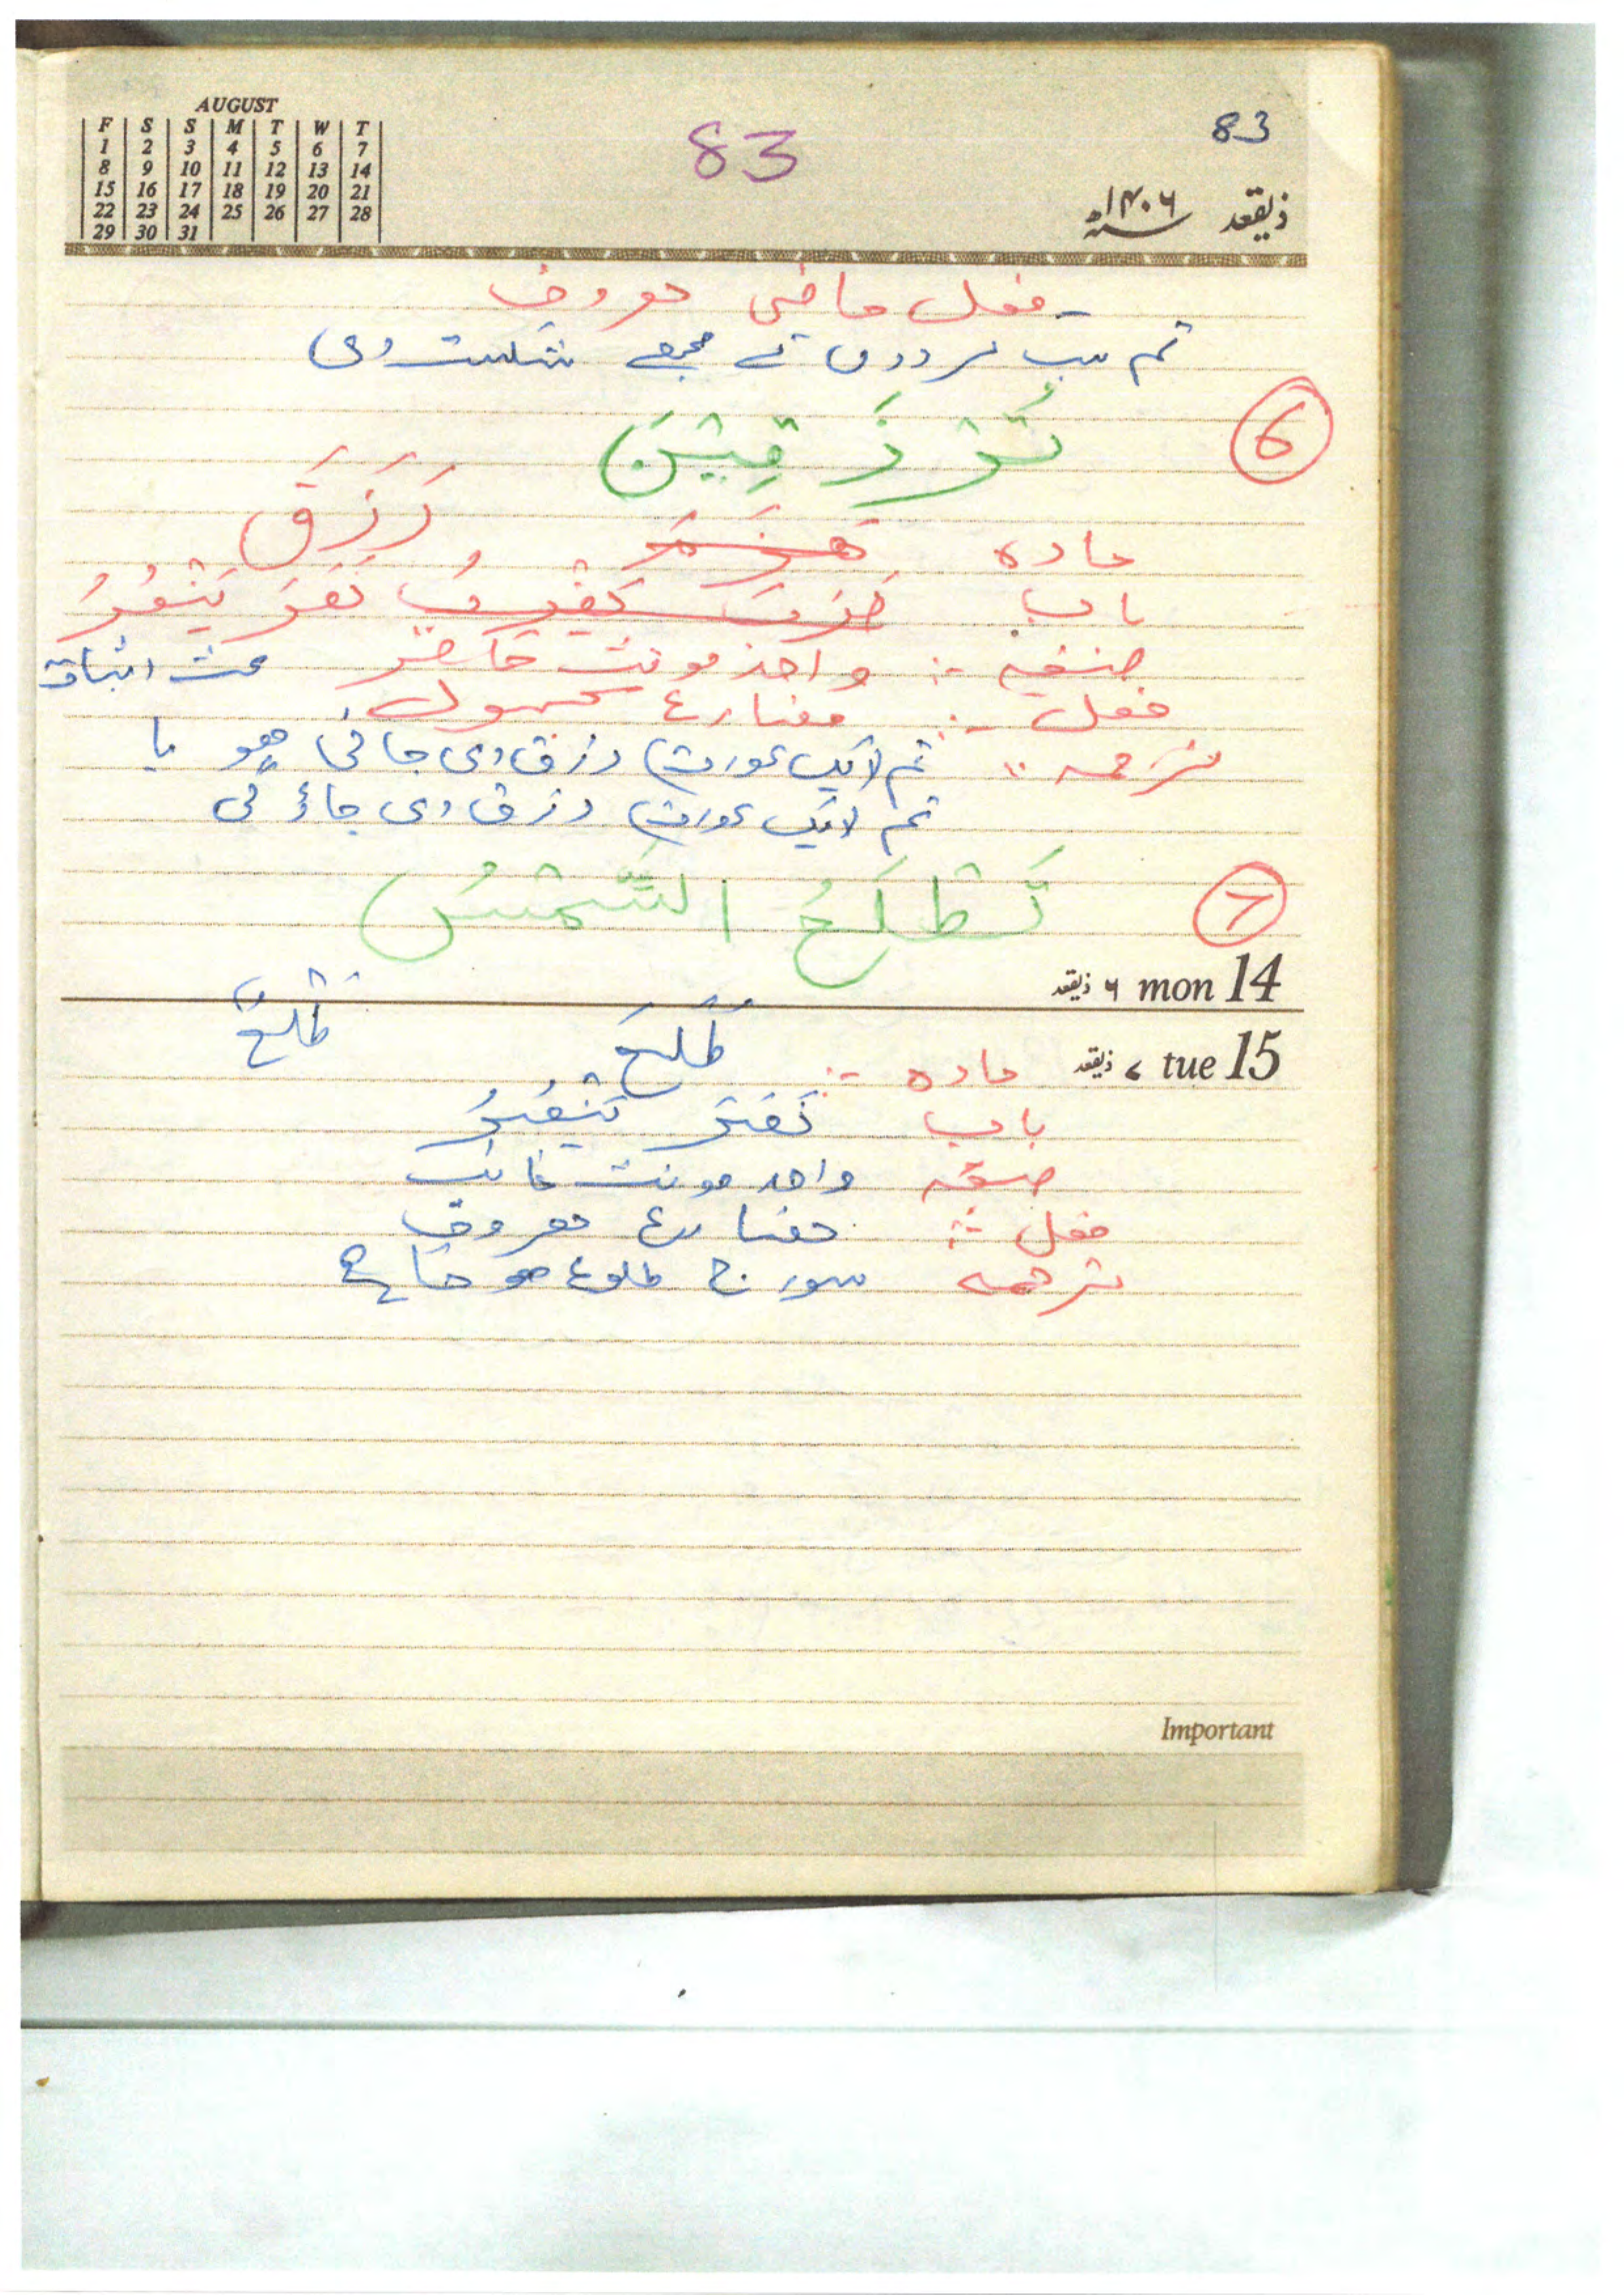 AUGUST
F S S M T W T
1 2 3 4 5 6 7
8 9 10 11 12 13 14
15 16 17 18 19 20 21
22 23 24 25 26 27 28
29 30 31
83
83
ذیقعد ۱۴۰۶
فعل ماضی معروف
تم سب مردوں نے مجھے شکست دی
6
تُرْزَقِیْنَ
مادہ رَزَقَ
باب نَصَرَ یَنْصُرُ
صیغہ :- واحد مونث حاضر بحث اثبات
فعل :- مضارع مجہول
ترجمہ :- تم (ایک عورت) رزق دی جاتی ہو یا
تم (ایک عورت) رزق دی جاؤ گی
7
تَطْلَعُ الشَّمْسُ
۶ ذیقعد mon 14
۷ ذیقعد tue 15
مادہ :- طَلَعَ طلع
باب نَصَرَ یَنْصُرُ
صیغہ واحد مونث غائب
فعل :- مضارع معروف
ترجمہ سورج طلوع ہوتا ہے
Important